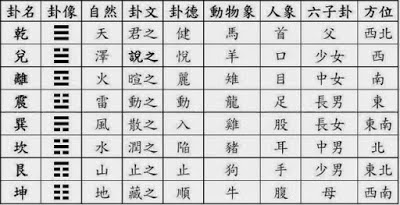 卦名 卦像 自然 卦文 卦德 動物象 人象 六子卦 方位
乾 ☰ 天 君之 健 馬 首 父 西北
兌 ☱ 澤 說之 悅 羊 口 少女 西
離 ☲ 火 暄之 麗 雉 目 中女 南
震 ☳ 雷 動之 動 龍 足 長男 東
巽 ☴ 風 散之 入 雞 股 長女 東南
坎 ☵ 水 潤之 陷 豬 耳 中男 北
艮 ☶ 山 止之 止 狗 手 少男 東北
坤 ☷ 地 藏之 順 牛 腹 母 西南